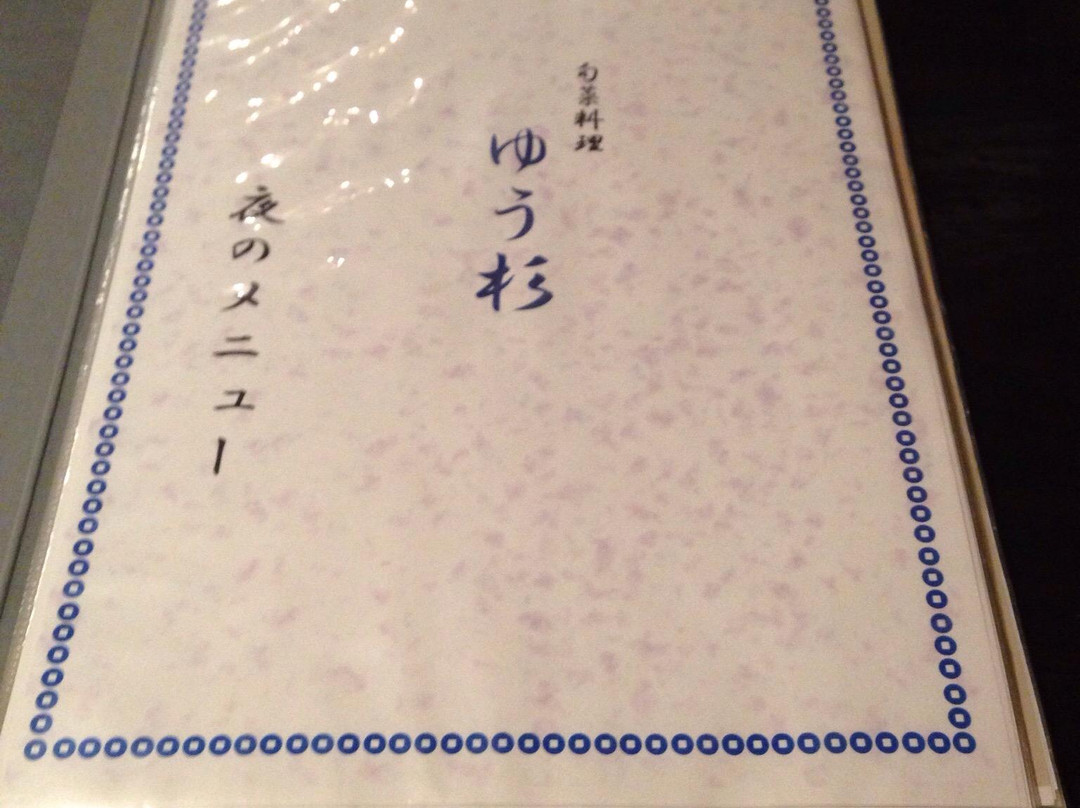 旬菜料理
ゆう杉
夜のメニュー